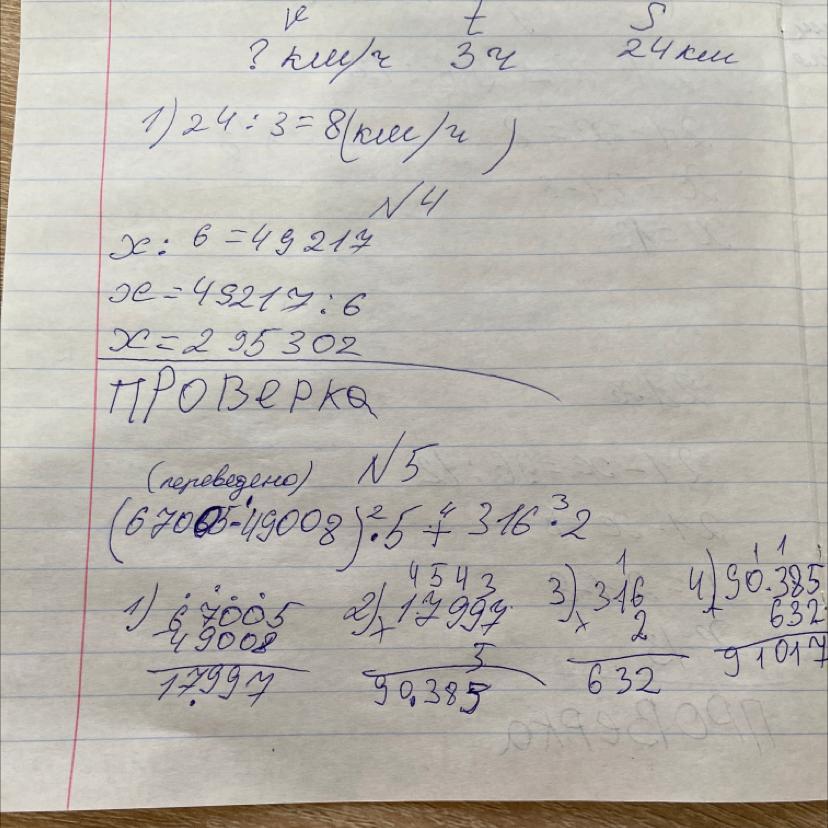 v t S
? км/ч 3ч 24км
1) 24:3=8(км/ч)
N4
x:6=49217
x=49217:6
x=295302
ПРОВерка
(переведено) N5
(67005-49008)·5+316·2
1) 67005 2) 17997 3) 316 4) 90.385
49008 5 × 2 632
17997 90.385 632 91017